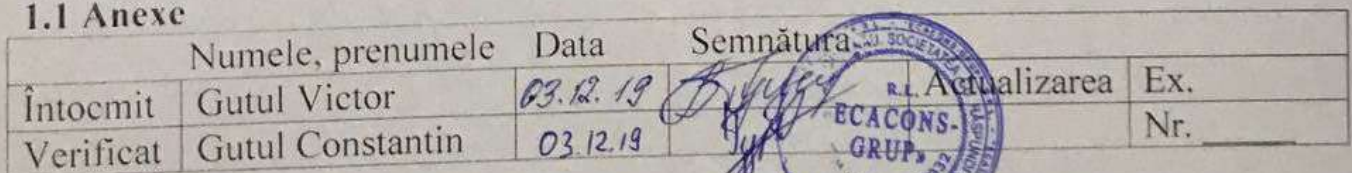 1.1 Anexe
Numele, prenumele Data Semnătura
Întocmit Gutul Victor 03.12.19 Actualizarea Ex.
Verificat Gutul Constantin 03.12.19 Nr. ______
R.L.
ECACONS-
GRUP»
SOCIETATEA